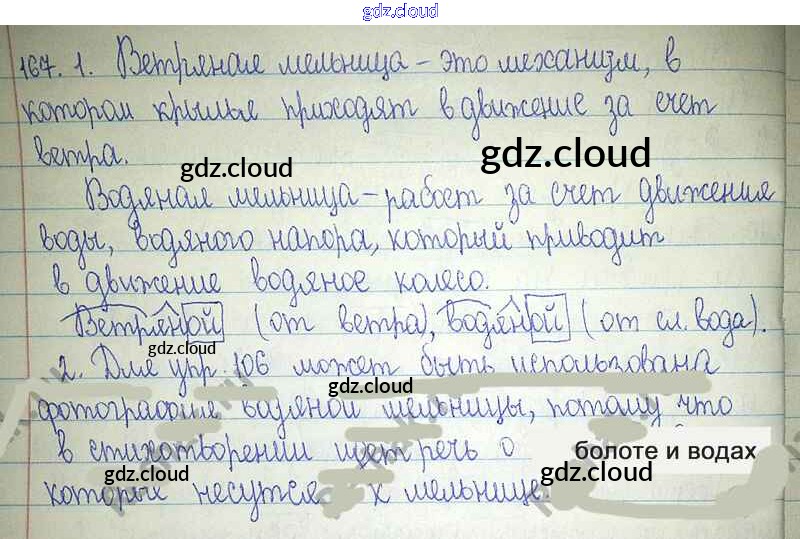 gdz.cloud
167. 1. Ветряная мельница – это механизм, в
котором крылья приходят в движение за счет
ветра.
gdz.cloud
gdz.cloud
Водяная мельница – рабоет за счет движения
воды, водяного напора, который приводит
в движение водяное колесо.
Ветряной (от ветра), водяной (от сл. вода).
gdz.cloud
2. Для упр. 106 может быть использована
gdz.cloud
фотография водяной мельницы, потому что
в стихотворении идет речь о болоте и водах
gdz.cloud
gdz.cloud
которые несутся к мельнице.